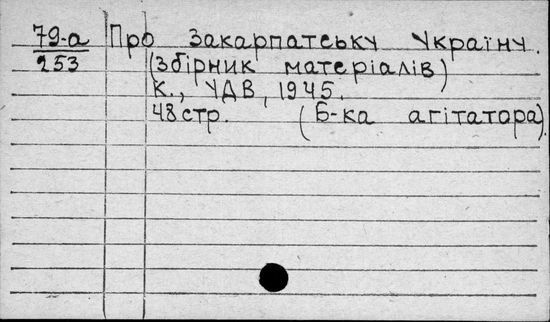 79-а Про Закарпатську Україну.
253 (збірник матеріалів)
К., УДВ, 1945.
48 стр. (Б-ка агітатора).